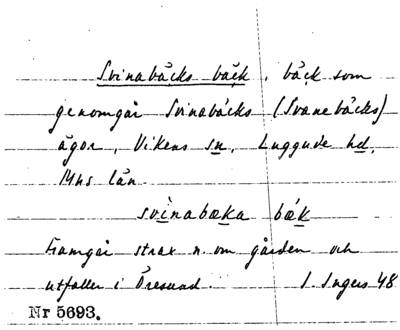 Svinabäcks bäck, bäck som
genomgår Svinabäcks (Svanebäcks)
ägor, Vikens sn, Luggude hd,
Mhs län.
svìnabæka bǽk
Framgår strax n. om gården och
utfaller i Öresund. I. Ingers 48
Nr 5693.